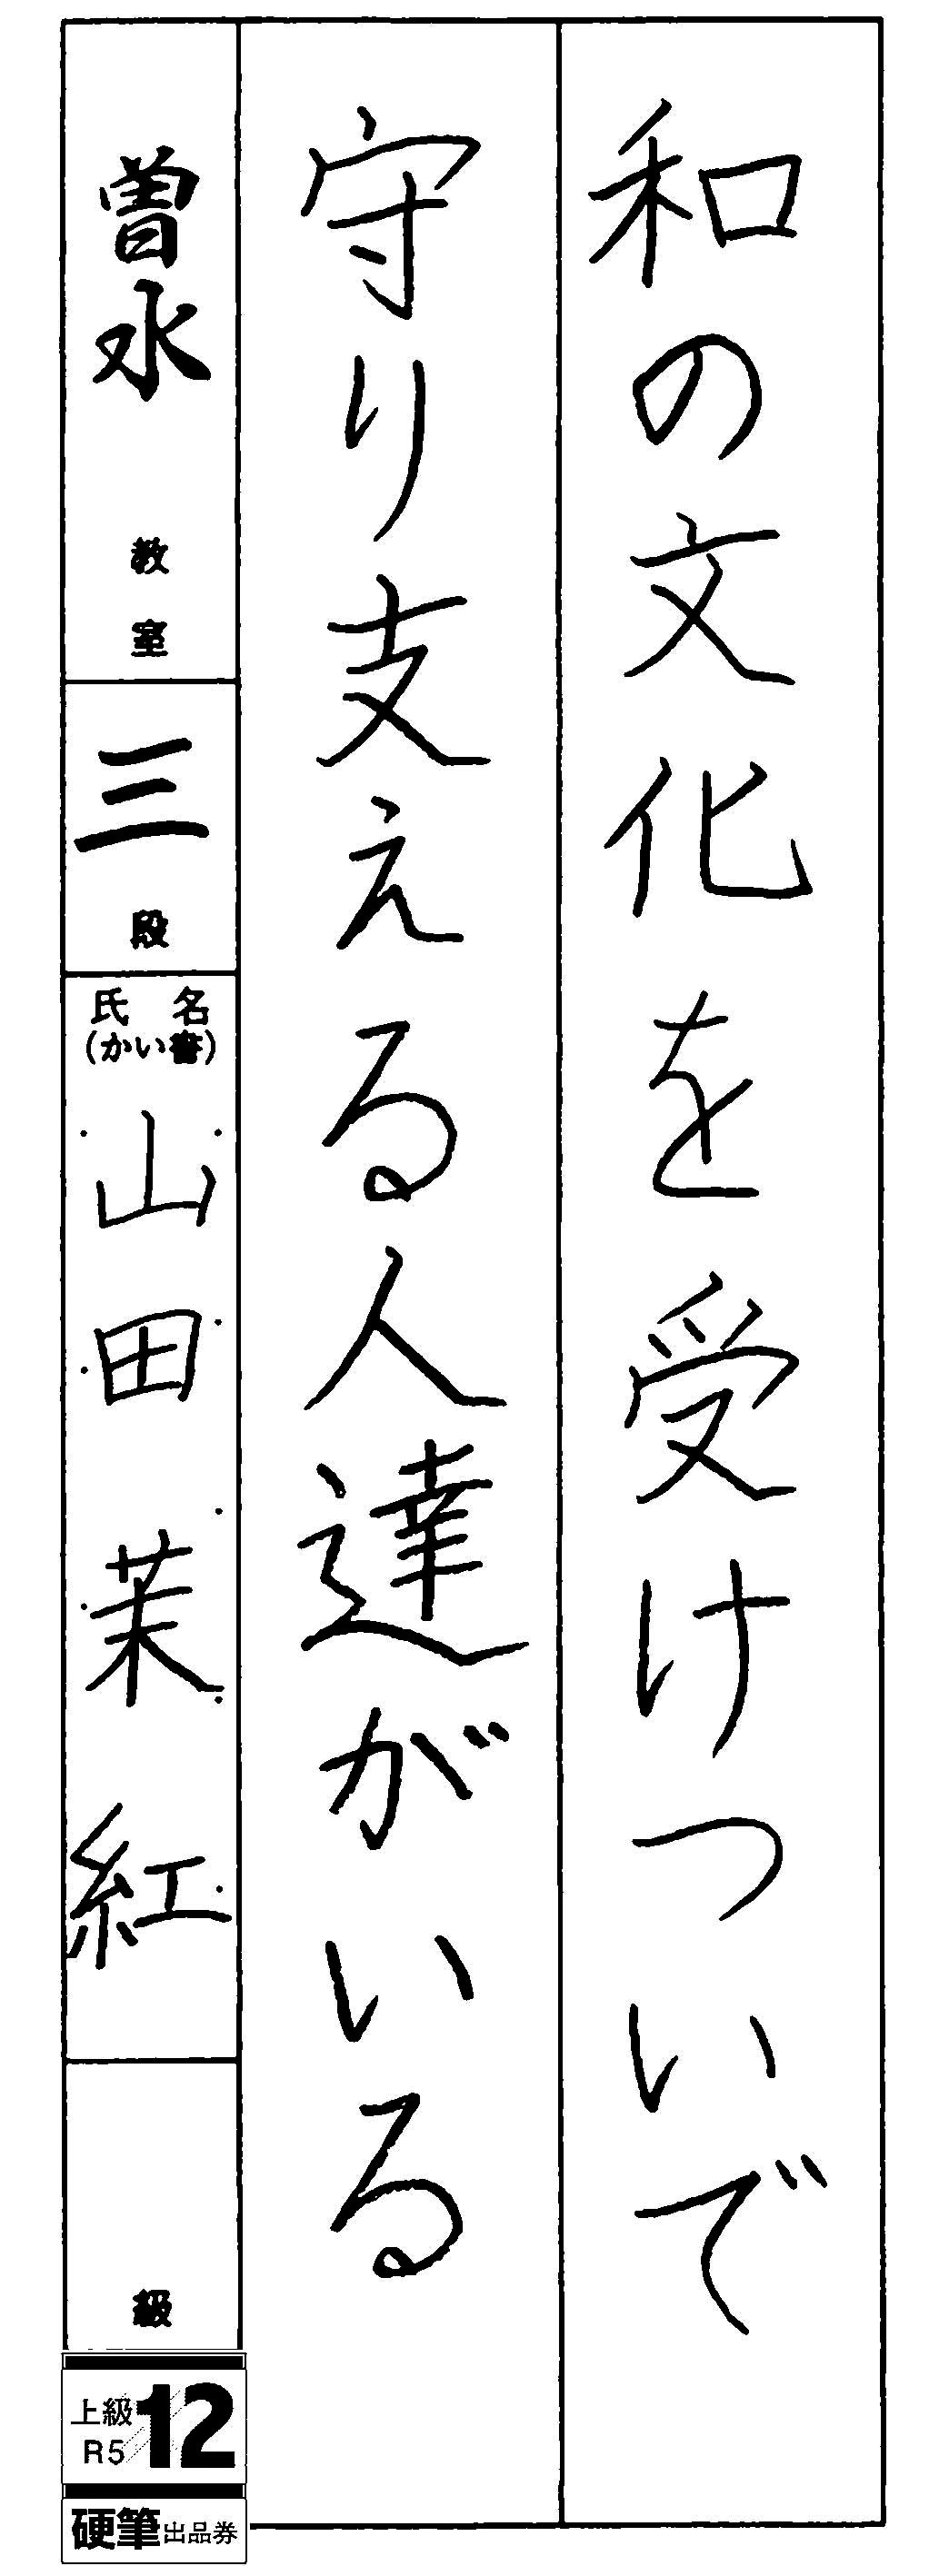 和の文化を受けついで
守り支える人達がいる
曽水 教室
三 段
氏名
(かい書)
山田茉紅
級
上級
R5
12
硬筆出品券